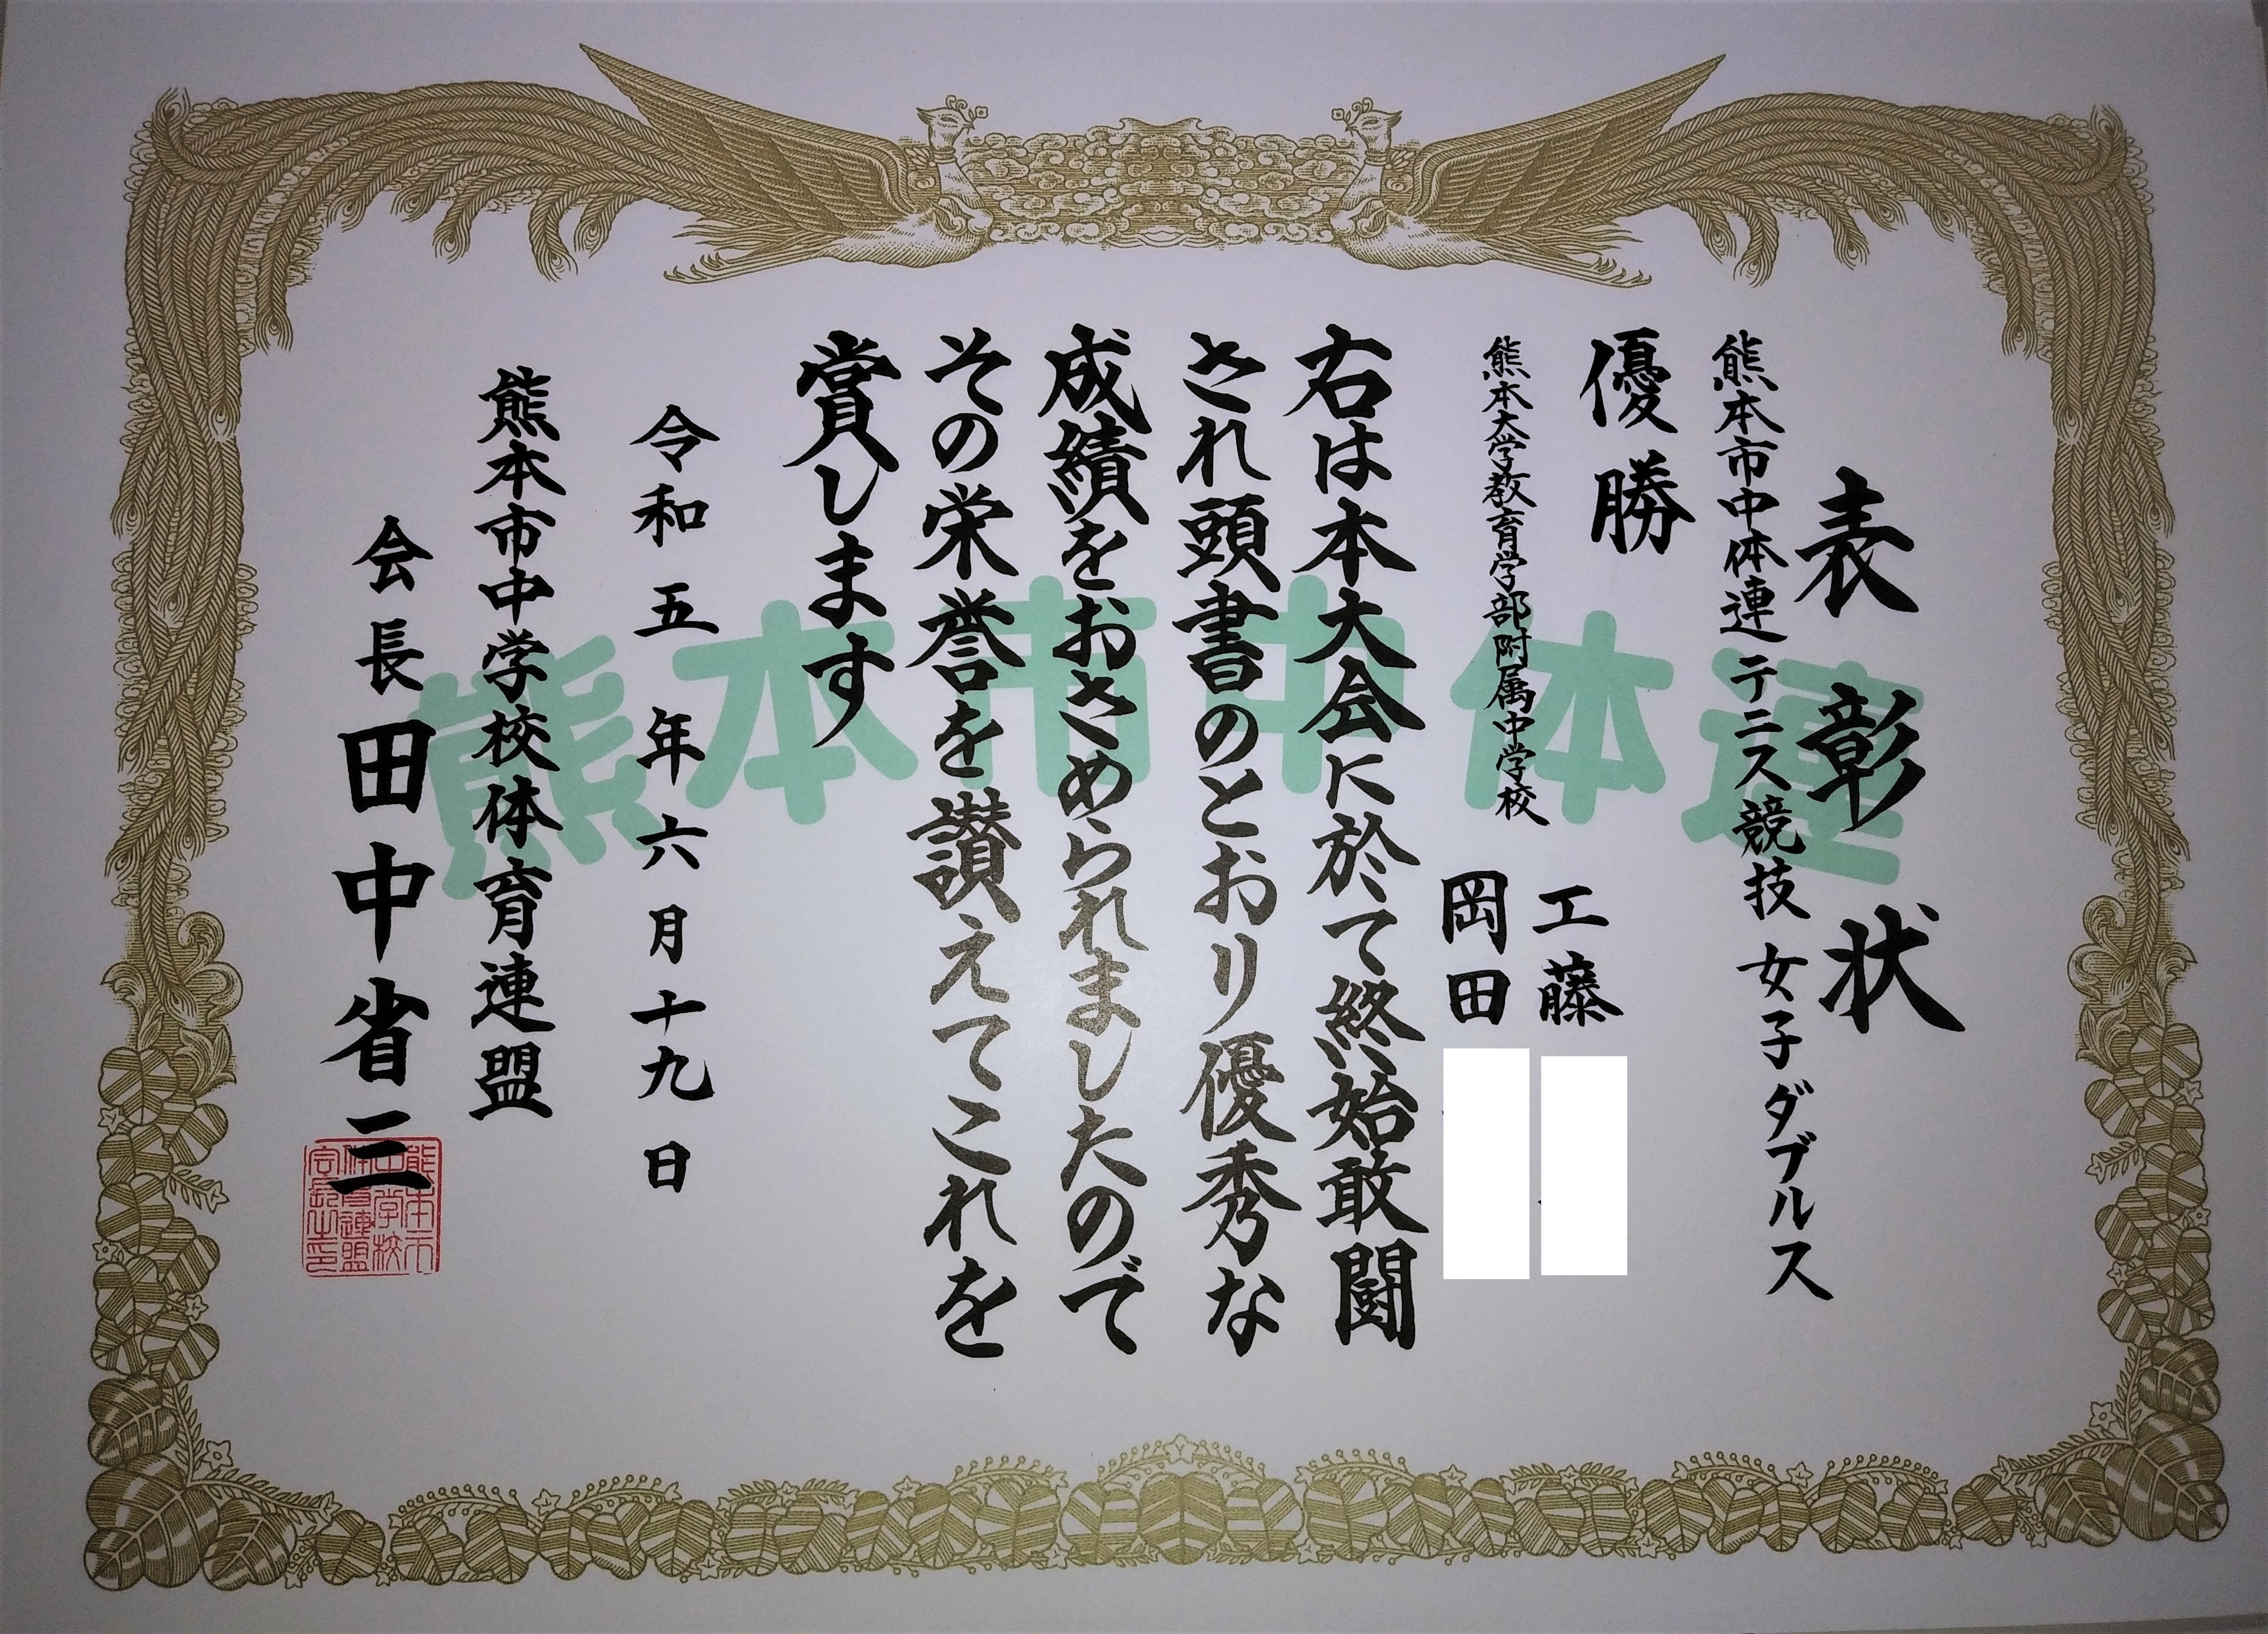 表彰状
熊本市中体連 テニス競技 女子ダブルス
優勝
熊本大学教育学部附属中学校
工藤
岡田
右は本大会に於て終始敢闘
され頭書のとおり優秀な
成績をおさめられましたので
その栄誉を讃えてこれを
賞します
令和五年六月十九日
熊本市中学校体育連盟
会長 田中省三
熊本市中体連
熊本市
中学校
体育連盟
会長之印